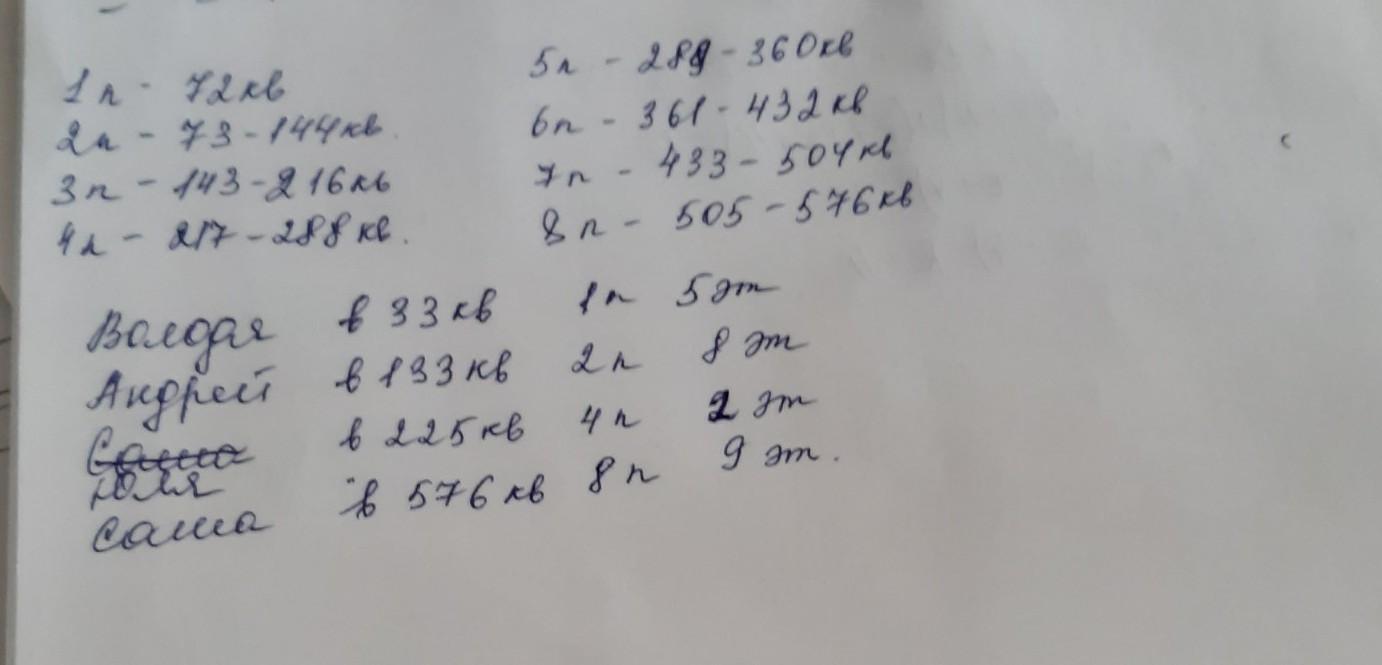 1п - 72кв
2п - 73-144кв.
3п - 143-216кв
4п - 217-288кв.
5п - 289-360кв
6п - 361-432кв
7п - 433-504кв
8п - 505-576кв
Володя в 33кв 1п 5эт
Андрей в 133кв 2п 8эт
Саша в 225кв 4п 2эт
Юля
Саша в 576кв 8п 9эт.